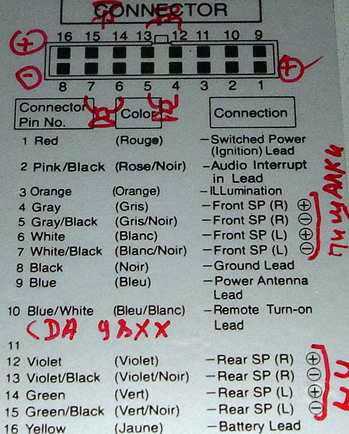 CONNECTOR
16 15 14 13 12 11 10 9
8 7 6 5 4 3 2 1
Connector Pin No. Color Connection
1 Red (Rouge) –Switched Power (Ignition) Lead
2 Pink/Black (Rose/Noir) –Audio Interrupt in Lead
3 Orange (Orange) –ILLumination
4 Gray (Gris) –Front SP (R) ⊕
5 Gray/Black (Gris/Noir) –Front SP (R) ⊖
6 White (Blanc) –Front SP (L) ⊕
7 White/Black (Blanc/Noir) –Front SP (L) ⊖
8 Black (Noir) –Ground Lead
9 Blue (Bleu) –Power Antenna Lead
10 Blue/White (Bleu/Blanc) –Remote Turn-on Lead
CDA 98XX
11
12 Violet (Violet) –Rear SP (R) ⊕
13 Violet/Black (Violet/Noir) –Rear SP (R) ⊖
14 Green (Vert) –Rear SP (L) ⊕
15 Green/Black (Vert/Noir) –Rear SP (L) ⊖
16 Yellow (Jaune) –Battery Lead